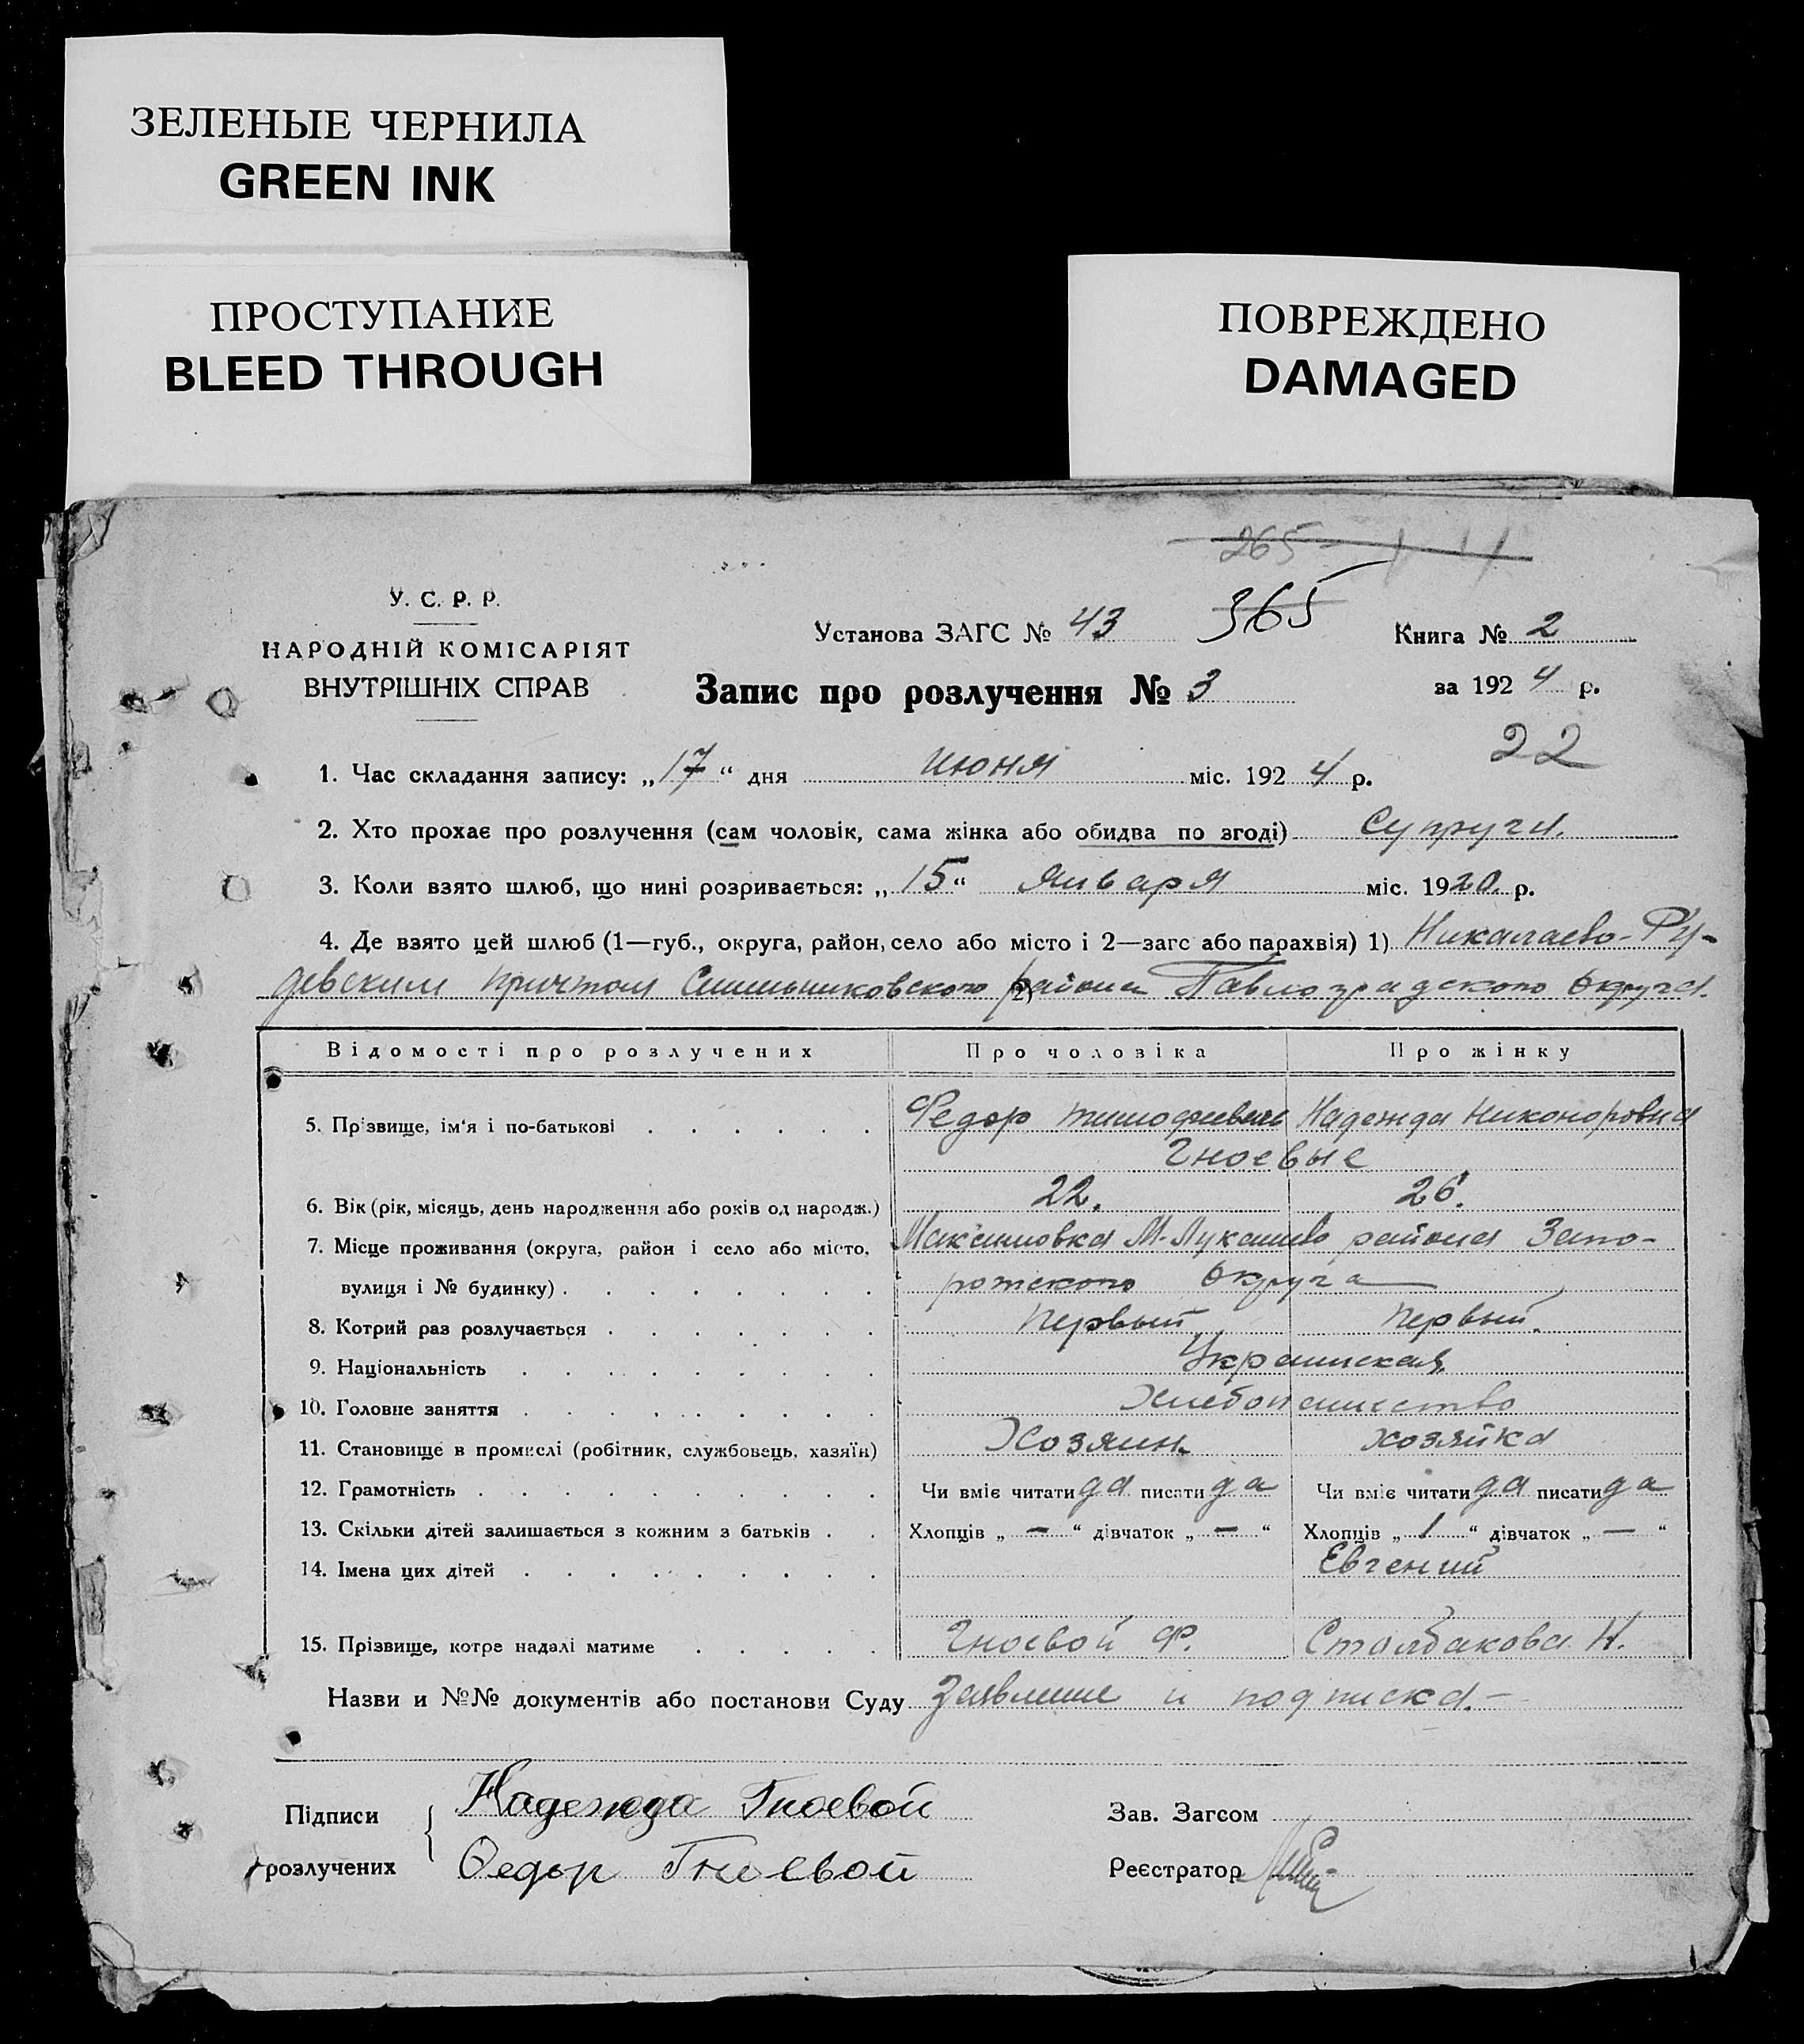 ЗЕЛЕНЫЕ ЧЕРНИЛА
GREEN INK
ПРОСТУПАНИЕ
BLEED THROUGH
ПОВРЕЖДЕНО
DAMAGED
265
У. С. Р. Р.
НАРОДНІЙ КОМІСАРІЯТ
ВНУТРІШНІХ СПРАВ
Установа ЗАГС № 43 365 Книга № 2
Запис про розлучення № 3 за 1924 р.
22
1. Час складання запису: „17“ дня июня міс. 1924 р.
2. Хто прохає про розлучення (сам чоловік, сама жінка або обидва по згоді) Супруги.
3. Коли взято шлюб, що нині розривається: „15“ января міс. 1920. р.
4. Де взято цей шлюб (1—губ., округа, район, село або місто і 2—загс або парахвія) 1) Николаево-Ру-
девским причтом Синельниковского 2) района Павлоградского округа.
Відомості про розлучених Про чоловіка Про жінку
5. Прізвище, ім'я і по-батькові Федор Тимофиевич Надежда Никоноровна
Гноевые
6. Вік (рік, місяць, день народження або років од народж.) 22. 26.
7. Місце проживання (округа, район і село або місто, Максимовка М-Лукашево района Запо-
вулиця і № будинку) рожского округа
8. Котрий раз розлучається Первый Первый.
9. Національність Украинская
10. Головне заняття Хлебопашество
11. Становище в промислі (робітник, службовець, хазяїн) Хозяин. хозяйка
12. Грамотність Чи вміє читати да писати да Чи вміє читати да писати да
13. Скільки дітей залишається з кожним з батьків Хлопців „ — “ дівчаток „ — “ Хлопців „ 1 “ дівчаток „ — “
14. Імена цих дітей Евгений
15. Прізвище, котре надалі матиме Гноевой Ф. Столбакова Н.
Назви и №№ документів або постанови Суду Заявление и подписка.—
Підписи Надежда Гноевой Зав. Загсом
розлучених Федор Гноевой Реєстратор